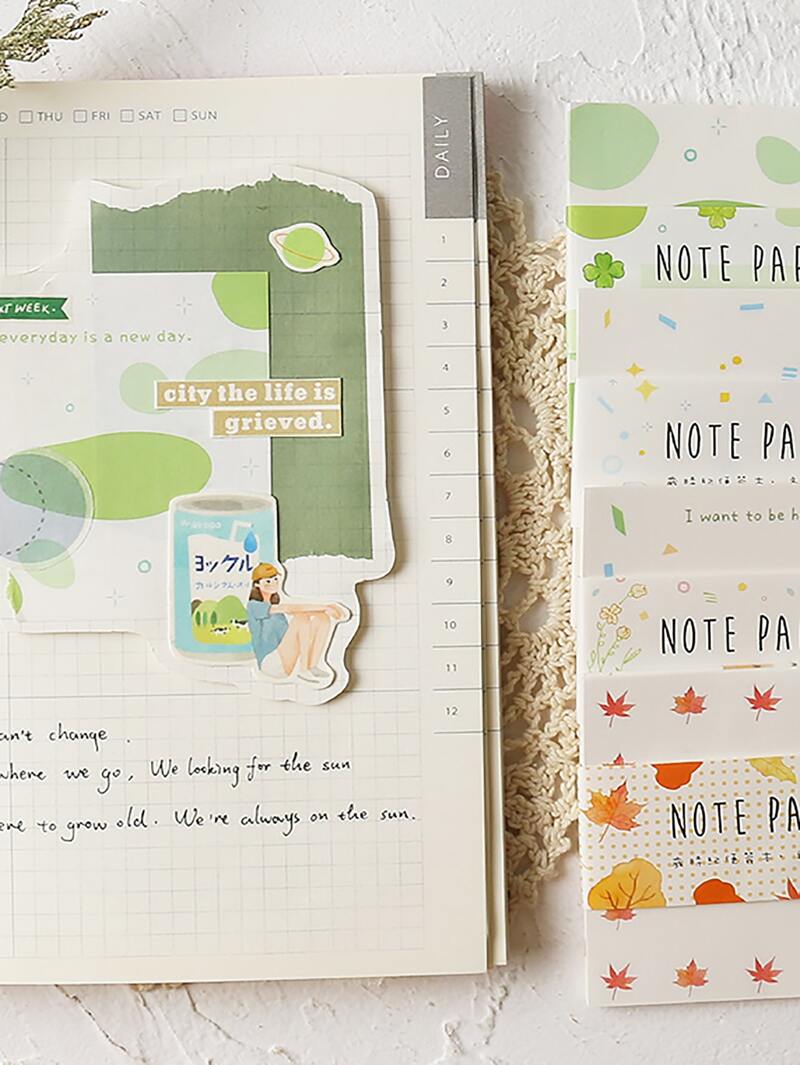 D THU FRI SAT SUN
DAILY
1
2
3
4
5
6
7
8
9
10
11
12
XT WEEK.
everyday is a new day.
city the life is
grieved.
ヨックル
an't change.
where we go, We looking for the sun
ere to grow old. We're always on the sun.
NOTE PAP
NOTE PA
I want to be h
NOTE PA
NOTE PA
歳時記便箋本